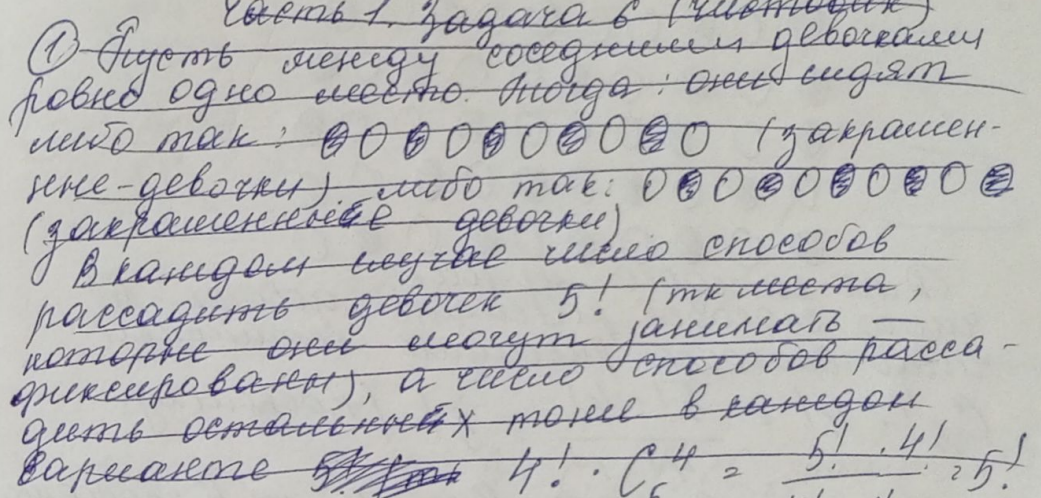 Часть 1. Задача 6 (чистовик)
① Пусть между соседними девочками
ровно одно место. Тогда: они сидят
либо так: (закрашен-
нне-девочки), либо так:
(закрашенные девочки)
В каждом случае число способов
рассадить девочек 5! (тк места,
которые они могут занимать —
фиксированы), а число способов расса-
дить остальных тоже в каждом
варианте 4! · C₅⁴ = 5! · 4! = 5!